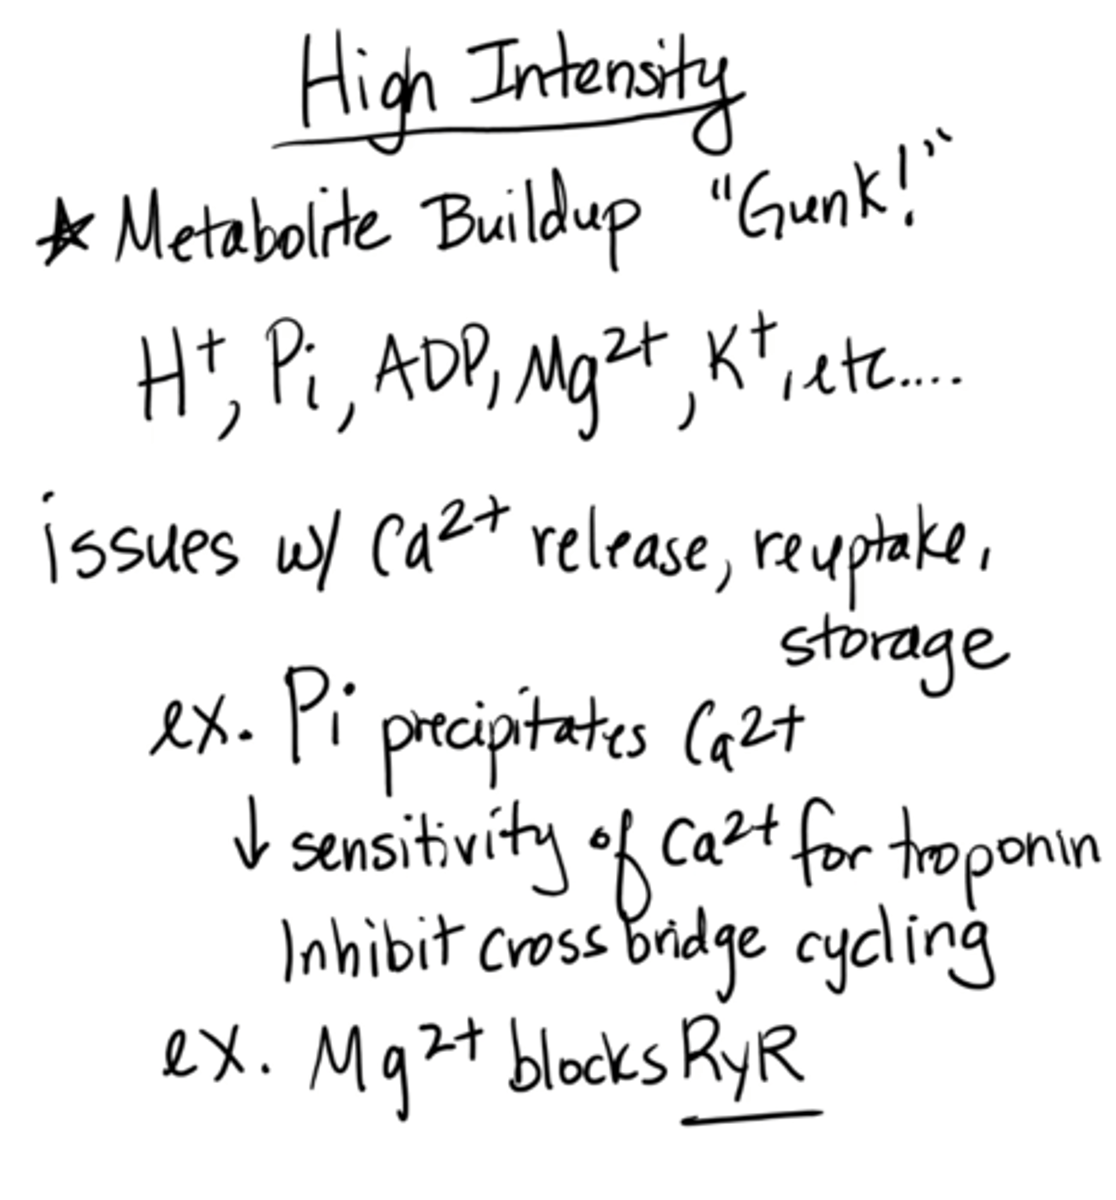 High Intensity
☆ Metabolite Buildup "Gunk!"
H⁺, Pi, ADP, Mg²⁺, K⁺, etc....
issues w/ Ca²⁺ release, reuptake,
storage
ex. Pi precipitates Ca²⁺
↓ sensitivity of Ca²⁺ for troponin
Inhibit cross bridge cycling
ex. Mg²⁺ blocks RyR